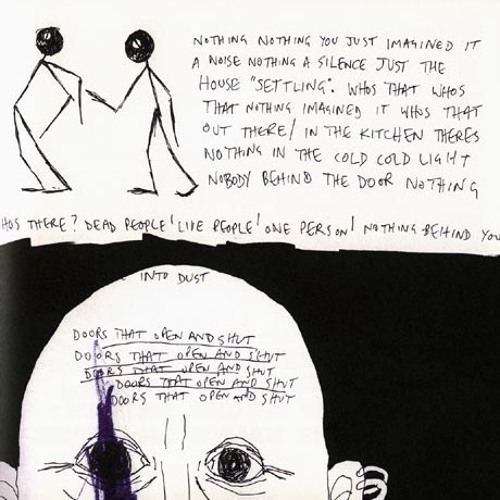 NOTHING NOTHING YOU JUST IMAGINED IT
A NOISE NOTHING A SILENCE JUST THE
HOUSE "SETTLING". WHOS THAT WHOS
THAT NOTHING IMAGINED IT WHOS THAT
OUT THERE/ IN THE KITCHEN THERES
NOTHING IN THE COLD COLD LIGHT
NOBODY BEHIND THE DOOR NOTHING
HOS THERE? DEAD PEOPLE! LIVE PEOPLE! ONE PERSON! NOTHING BEHIND YOU
INTO DUST
DOORS THAT OPEN AND SHUT
DOORS THAT OPEN AND SHUT
DOORS THAT OPEN AND SHUT
DOORS THAT OPEN AND SHUT
DOORS THAT OPEN AND SHUT